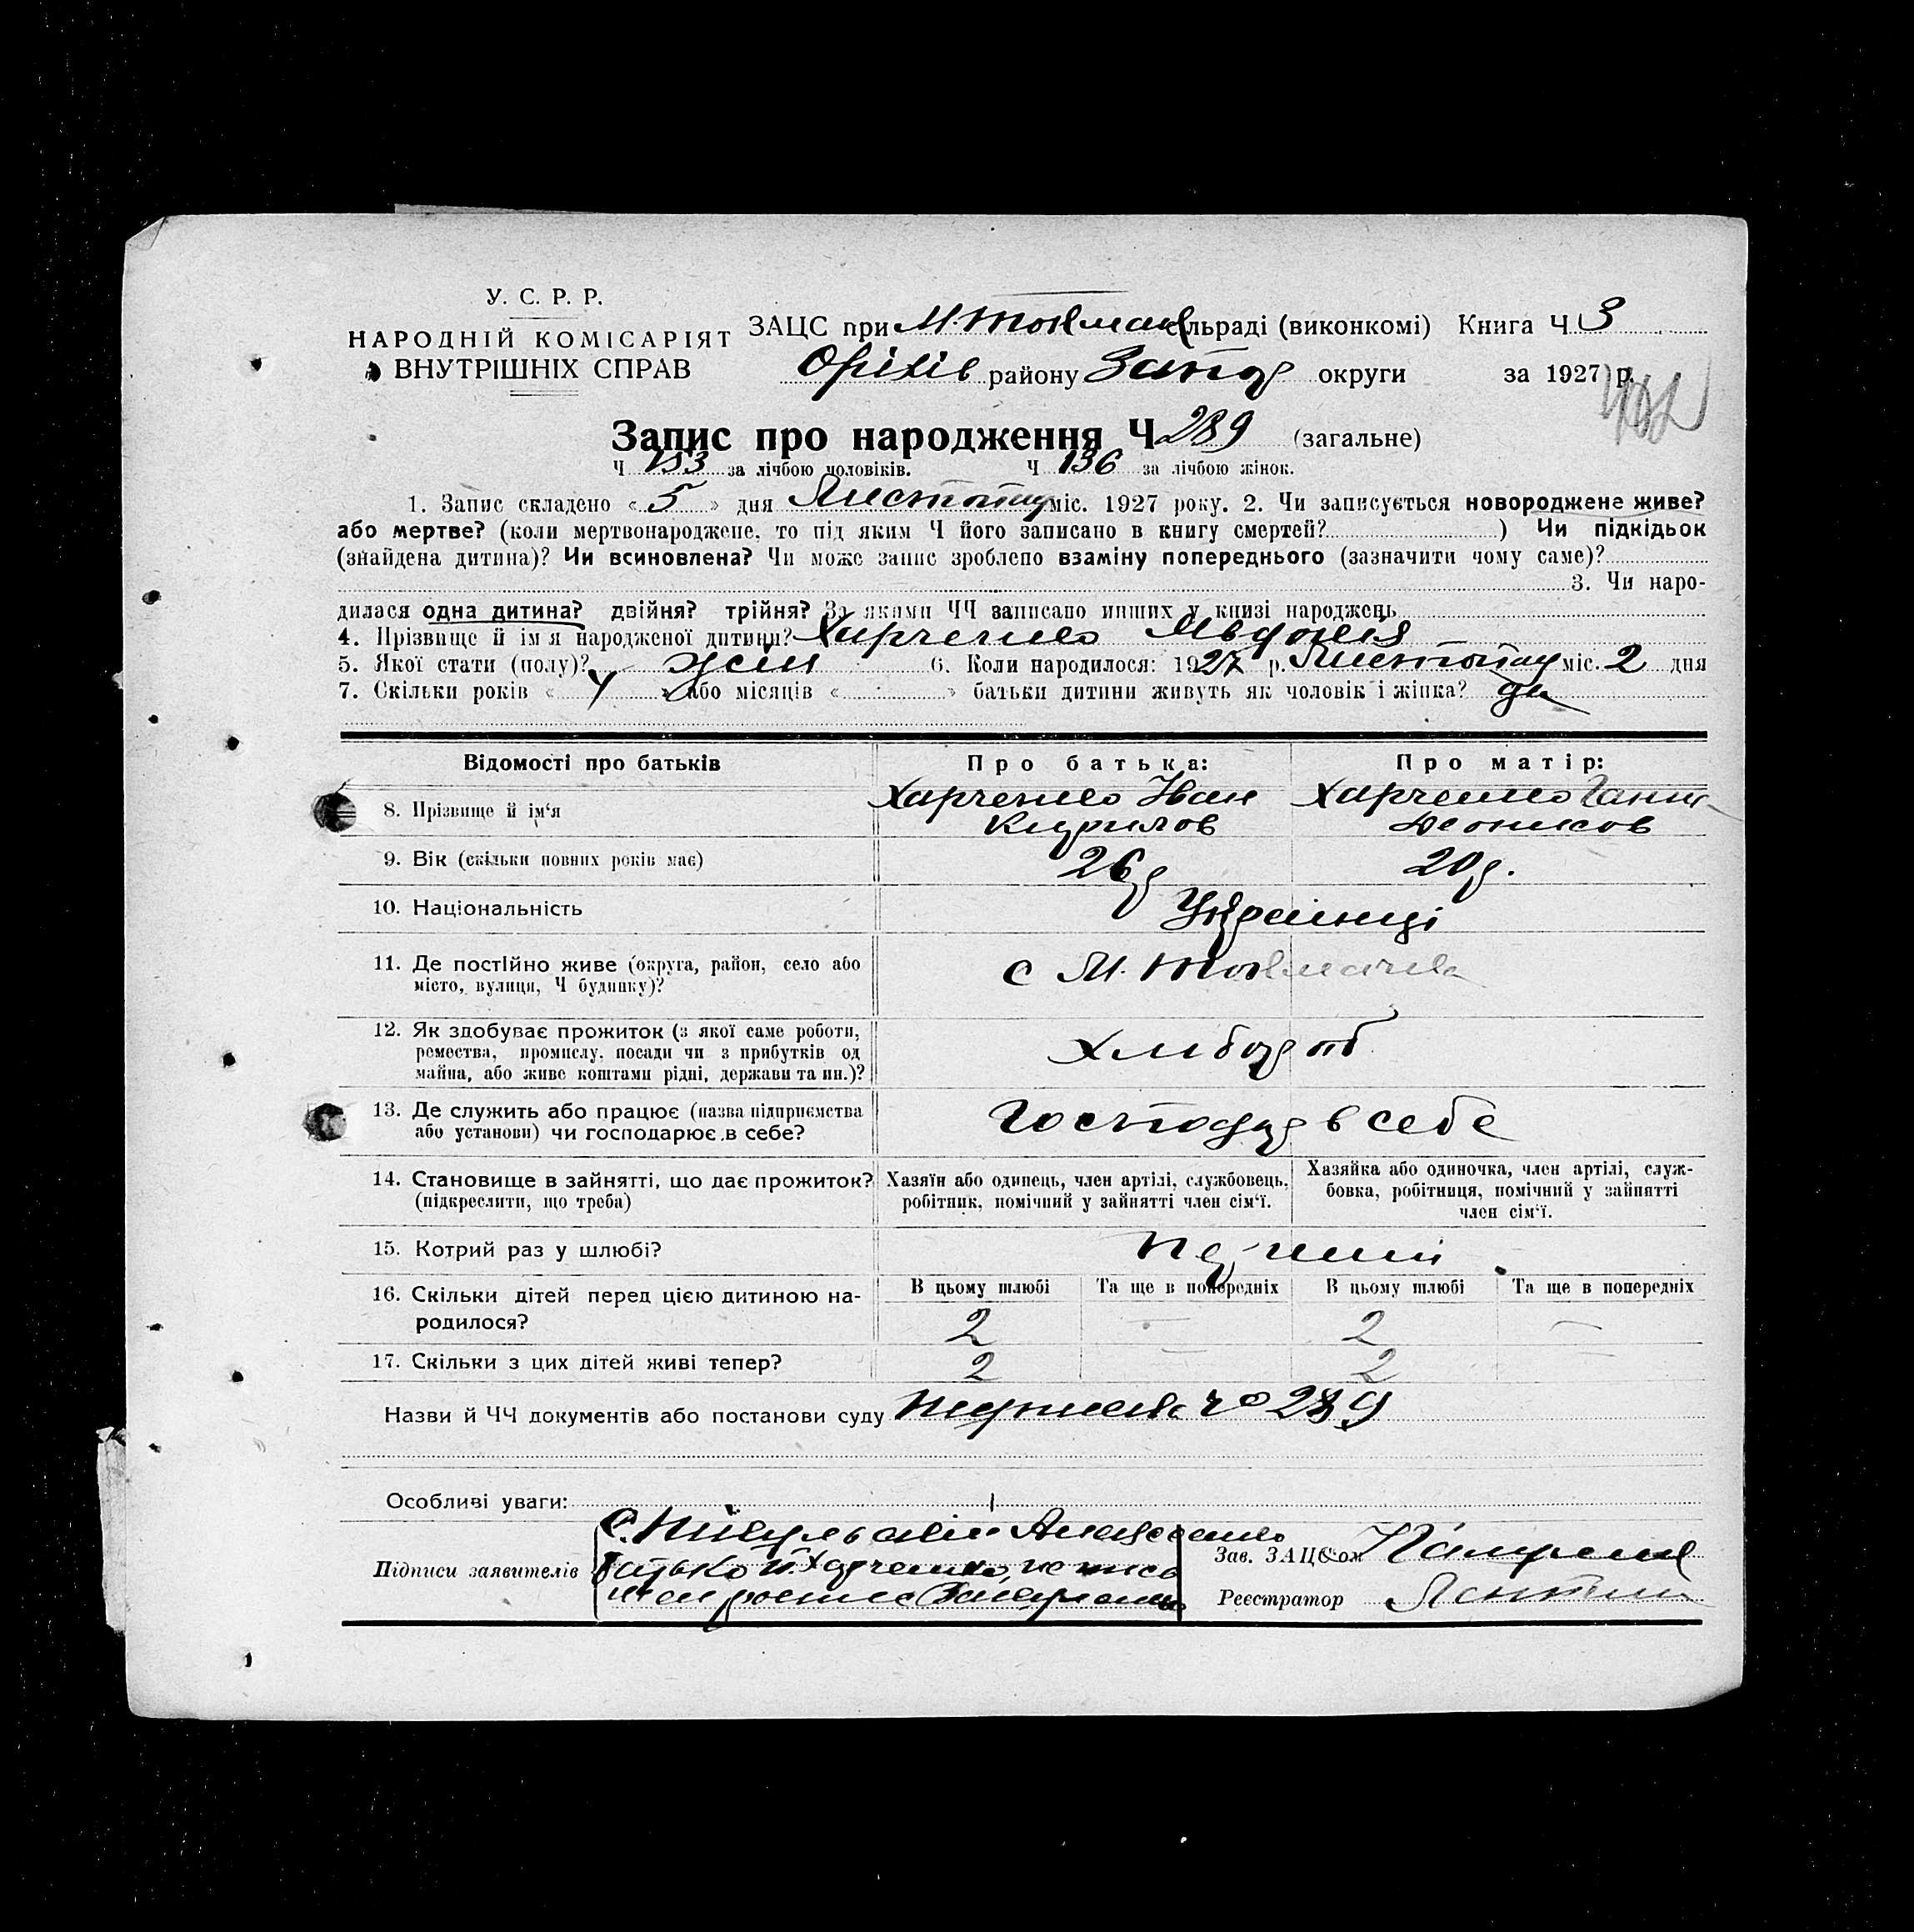 У. С. Р. Р.
НАРОДНІЙ КОМІСАРІЯТ
ВНУТРІШНІХ СПРАВ
ЗАЦС при М. Токмач сільраді (виконкомі) Книга Ч 3
Оріхів району Запор округи за 1927 р.
Запис про народження Ч 289 (загальне)
Ч 153 за лічбою чоловіків. Ч 136 за лічбою жінок.
1. Запис складено « 5 » дня Листопад міс. 1927 року. 2. Чи записується новороджене живе?
або мертве? (коли мертвонароджене, то під яким Ч його записано в книгу смертей? ) Чи підкідьок
(знайдена дитина)? Чи всиновлена? Чи може запис зроблено взаміну попереднього (зазначити чому саме)?
3. Чи наро-
дилася одна дитина? двійня? трійня? За якими ЧЧ записано инших у книзі народжень
4. Прізвище й ім'я народженої дитини? Харченко Явдокія
5. Якої стати (полу)? жін 6. Коли народилося: 1927 р. Листопад міс. 2 дня
7. Скільки років « 4 » або місяців « » батьки дитини живуть як чоловік і жінка? да
Відомості про батьків Про батька: Про матір:
8. Прізвище й ім'я Харченко Іван Харченко Ганна
Кирилов Денисов
9. Вік (скільки повних років має) 26 р 20 р.
10. Національність Українці
11. Де постійно живе (округа, район, село або
місто, вулиця, Ч будинку)? с М. Токмачка
12. Як здобуває прожиток (з якої саме роботи,
ремества, промислу, посади чи з прибутків од
майна, або живе коштами рідні, держави та ин.)? Хлібороб
13. Де служить або працює (назва підприємства
або установи) чи господарює в себе? Господар в себе
14. Становище в зайнятті, що дає прожиток?
(підкреслити, що треба)
Хазяїн або одинець, член артілі, службовець,
робітник, помічний у зайнятті член сім'ї.
Хазяйка або одиночка, член артілі, служ-
бовка, робітниця, помічний у зайнятті
член сім'ї.
15. Котрий раз у шлюбі?
В цьому шлюбі Та ще в попередніх В цьому шлюбі Та ще в попередніх
16. Скільки дітей перед цією дитиною на-
родилося? 2 — 2 —
17. Скільки з цих дітей живі тепер? 2 — 2 —
Назви й ЧЧ документів або постанови суду 289
Особливі уваги:
Підписи заявителів
батько Харченко, не
Зав. ЗАЦС'ом
Реєстратор